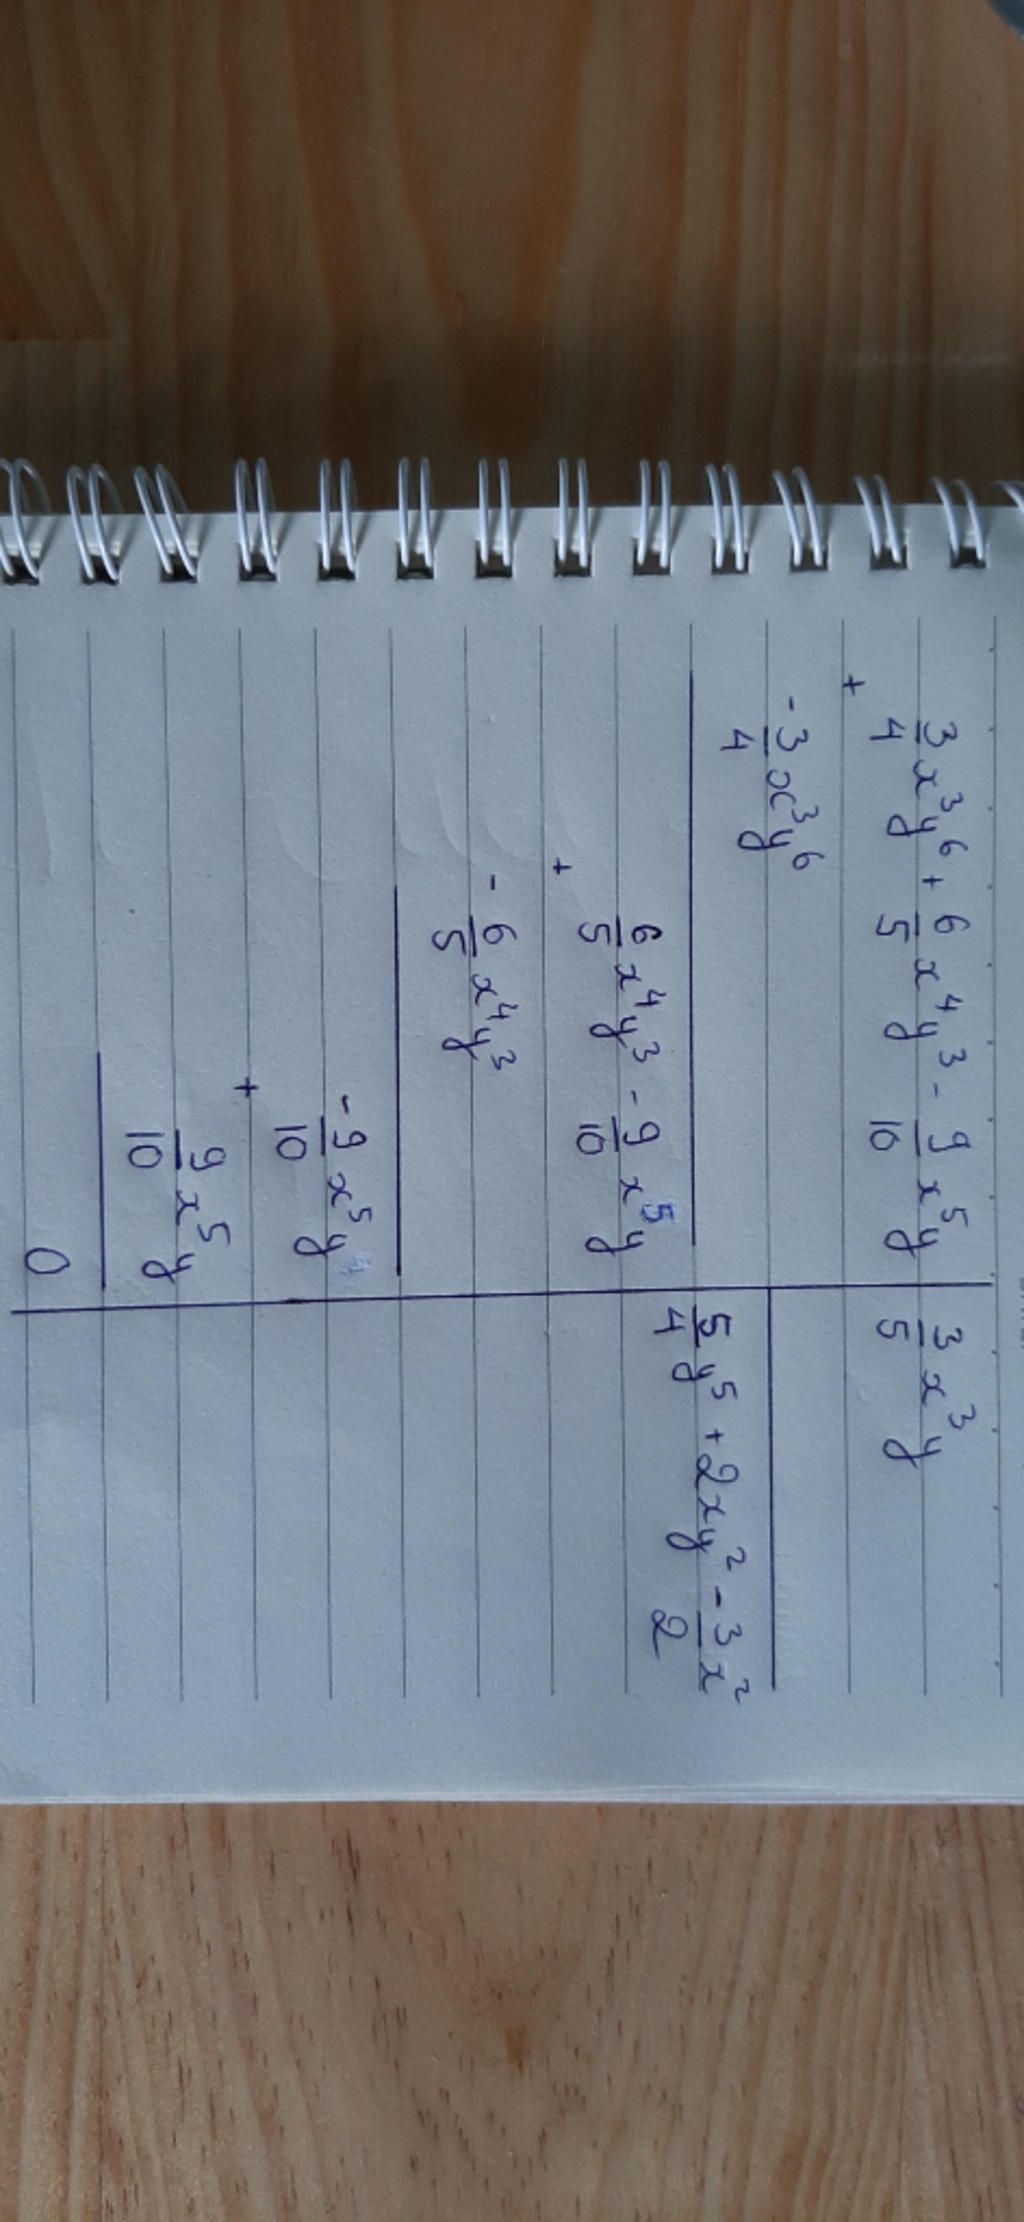 3/4 x³y⁶ + 6/5 x⁴y³ - 9/10 x⁵y | 3/5 x³y
+
-3/4 x³y⁶
5/4 y⁵ + 2xy² - 3/2 x²
6/5 x⁴y³ - 9/10 x⁵y
+
- 6/5 x⁴y³
-9/10 x⁵y
+
9/10 x⁵y
0